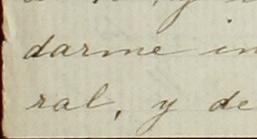 darme in
ral, y de